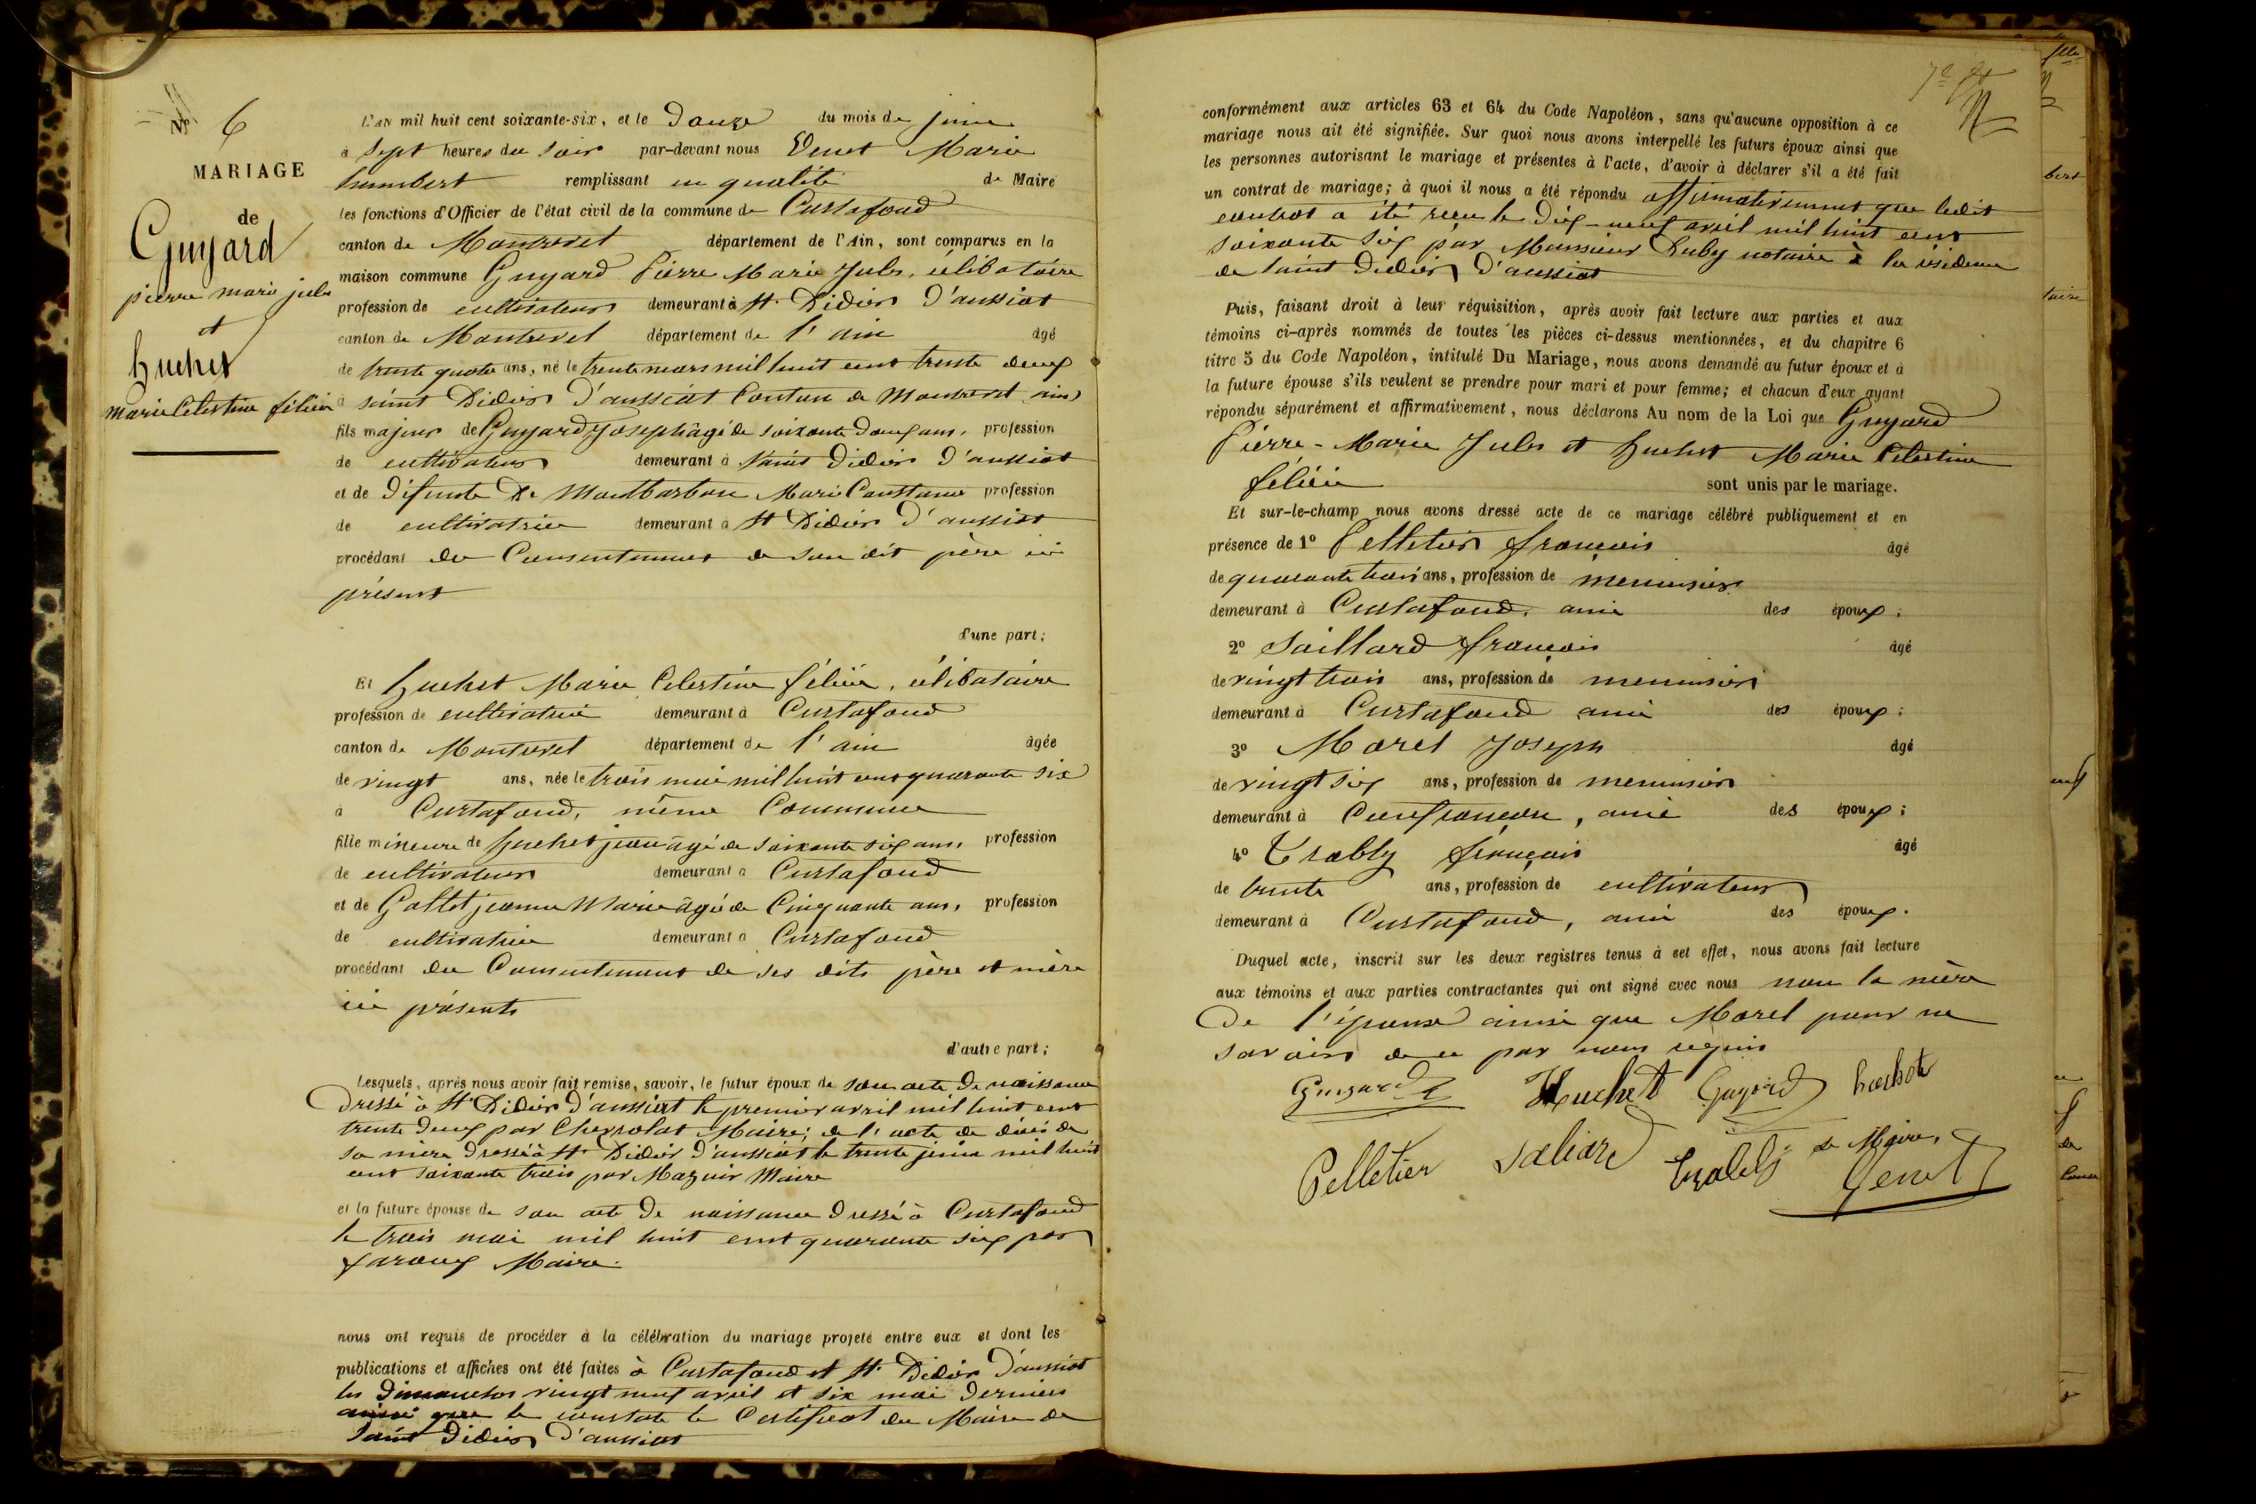 N° 6
MARIAGE
de
Guyard
pierre marie jules
et
huchet
marie Celestine félicie
L'AN mil huit cent soixante-six, et le douze du mois de juin
à sept heures du soir par-devant nous Venet Marie
humbert remplissant en qualité de Maire
les fonctions d'Officier de l'état civil de la commune de Curtafond
canton de Montrevel département de l'Ain, sont comparus en la
maison commune Guyard Pierre Marie Jules, célibataire
profession de cultivateur demeurant à St Didier d'aussiat
canton de Montrevel département de l'ain âgé
de trente quatre ans, né le trente mars mil huit cent trente deux
à saint Didier d'aussiat Canton de Montrevel ain
fils majeur de Guyard Joseph âgé de soixante douze ans, profession
de cultivateur demeurant à Saint Didier d'aussiat
et de défunte De Montbarbon Marie Constance profession
de cultivatrice demeurant à St Didier d'aussiat
procédant du Consentement de son dit père ici
présent
d'une part;
Et huchet Marie Celestine félicie, célibataire
profession de cultivatrice demeurant à Curtafond
canton de Montrevel département de l'ain âgée
de vingt ans, née le trois mai mil huit cent quarante six
à Curtafond, même Commune
fille mineure de huchet jean âgé de soixante six ans, profession
de cultivateur demeurant à Curtafond
et de Gallet jeanne Marie âgée de Cinquante ans, profession
de cultivatrice demeurant à Curtafond
procédant du Consentement de ses dits père et mère
ici présents
d'autre part;
Lesquels, après nous avoir fait remise, savoir, le futur époux de son acte de naissance
dressé à St Didier d'aussiat le premier avril mil huit cent
trente deux par Chevrolat Maire; de l'acte de décès de
sa mère dressé à St Didier d'aussiat le trente juin mil huit
cent soixante trois par Mazuir Maire
et la future épouse de son acte de naissance dressé à Curtafond
le trois mai mil huit cent quarante six par
faroux Maire.
nous ont requis de procéder à la célébration du mariage projeté entre eux et dont les
publications et affiches ont été faites à Curtafond et St Didier d'aussiat
les Dimanches vingt neuf avril et six mai derniers
ainsi que le constate le Certificat du Maire de
Saint Didier d'aussiat
conformément aux articles 63 et 64 du Code Napoléon, sans qu'aucune opposition à ce
mariage nous ait été signifiée. Sur quoi nous avons interpellé les futurs époux ainsi que
les personnes autorisant le mariage et présentes à l'acte, d'avoir à déclarer s'il a été fait
un contrat de mariage; à quoi il nous a été répondu affirmativement que ledit
contrat a été reçu le dix-neuf avril mil huit cent
soixante six par Monsieur Duby notaire à la résidence
de saint Didier d'aussiat
Puis, faisant droit à leur réquisition, après avoir fait lecture aux parties et aux
témoins ci-après nommés de toutes les pièces ci-dessus mentionnées, et du chapitre 6
titre 5 du Code Napoléon, intitulé Du Mariage, nous avons demandé au futur époux et à
la future épouse s'ils veulent se prendre pour mari et pour femme; et chacun d'eux ayant
répondu séparément et affirmativement, nous déclarons Au nom de la Loi que Guyard
Pierre-Marie Jules et huchet Marie Celestine
félicie sont unis par le mariage.
Et sur-le-champ nous avons dressé acte de ce mariage célébré publiquement et en
présence de 1° Pelletier françois âgé
de quarante trois ans, profession de menuisier
demeurant à Curtafond, ami des époux;
2° Saillard françois âgé
de vingt trois ans, profession de menuisier
demeurant à Curtafond ami des époux;
3° Morel Joseph âgé
de vingt six ans, profession de menuisier
demeurant à Confrançon, ami des époux;
4° Trably françois âgé
de trente ans, profession de cultivateur
demeurant à Curtafond, ami des époux.
Duquel acte, inscrit sur les deux registres tenus à cet effet, nous avons fait lecture
aux témoins et aux parties contractantes qui ont signé avec nous non la mère
de l'épouse ainsi que Morel pour ne
savoir de ce par nous requis
Guyard Huchet Guyard huchet
Pelletier Saliard Trably le Maire,
Venet